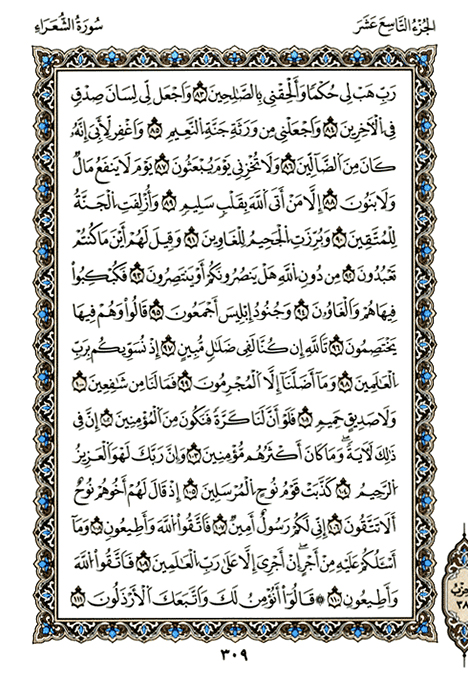 الجزء التاسع عشر
سورة الشعراء
رَبِّ هَبْ لِي حُكْمًا وَأَلْحِقْنِي بِالصَّالِحِينَ ٨٣ وَاجْعَل لِّي لِسَانَ صِدْقٍ
فِي الْآخِرِينَ ٨٤ وَاجْعَلْنِي مِن وَرَثَةِ جَنَّةِ النَّعِيمِ ٨٥ وَاغْفِرْ لِأَبِي إِنَّهُ
كَانَ مِنَ الضَّالِّينَ ٨٦ وَلَا تُخْزِنِي يَوْمَ يُبْعَثُونَ ٨٧ يَوْمَ لَا يَنفَعُ مَالٌ
وَلَا بَنُونَ ٨٨ إِلَّا مَنْ أَتَى اللَّهَ بِقَلْبٍ سَلِيمٍ ٨٩ وَأُزْلِفَتِ الْجَنَّةُ
لِلْمُتَّقِينَ ٩٠ وَبُرِّزَتِ الْجَحِيمُ لِلْغَاوِينَ ٩١ وَقِيلَ لَهُمْ أَيْنَ مَا كُنتُمْ
تَعْبُدُونَ ٩٢ مِن دُونِ اللَّهِ هَلْ يَنصُرُونَكُمْ أَوْ يَنتَصِرُونَ ٩٣ فَكُبْكِبُوا
فِيهَا هُمْ وَالْغَاوُونَ ٩٤ وَجُنُودُ إِبْلِيسَ أَجْمَعُونَ ٩٥ قَالُوا وَهُمْ فِيهَا
يَخْتَصِمُونَ ٩٦ تَاللَّهِ إِن كُنَّا لَفِي ضَلَالٍ مُّبِينٍ ٩٧ إِذْ نُسَوِّيكُم بِرَبِّ
الْعَالَمِينَ ٩٨ وَمَا أَضَلَّنَا إِلَّا الْمُجْرِمُونَ ٩٩ فَمَا لَنَا مِن شَافِعِينَ ١٠٠
وَلَا صَدِيقٍ حَمِيمٍ ١٠١ فَلَوْ أَنَّ لَنَا كَرَّةً فَنَكُونَ مِنَ الْمُؤْمِنِينَ ١٠٢ إِنَّ فِي
ذَٰلِكَ لَآيَةً ۖ وَمَا كَانَ أَكْثَرُهُم مُّؤْمِنِينَ ١٠٣ وَإِنَّ رَبَّكَ لَهُوَ الْعَزِيزُ
الرَّحِيمُ ١٠٤ كَذَّبَتْ قَوْمُ نُوحٍ الْمُرْسَلِينَ ١٠٥ إِذْ قَالَ لَهُمْ أَخُوهُمْ نُوحٌ
أَلَا تَتَّقُونَ ١٠٦ إِنِّي لَكُمْ رَسُولٌ أَمِينٌ ١٠٧ فَاتَّقُوا اللَّهَ وَأَطِيعُونِ ١٠٨ وَمَا
أَسْأَلُكُمْ عَلَيْهِ مِنْ أَجْرٍ ۖ إِنْ أَجْرِيَ إِلَّا عَلَىٰ رَبِّ الْعَالَمِينَ ١٠٩ فَاتَّقُوا اللَّهَ
وَأَطِيعُونِ ١١٠ ۞ قَالُوا أَنُؤْمِنُ لَكَ وَاتَّبَعَكَ الْأَرْذَلُونَ ١١١
٣٠٩